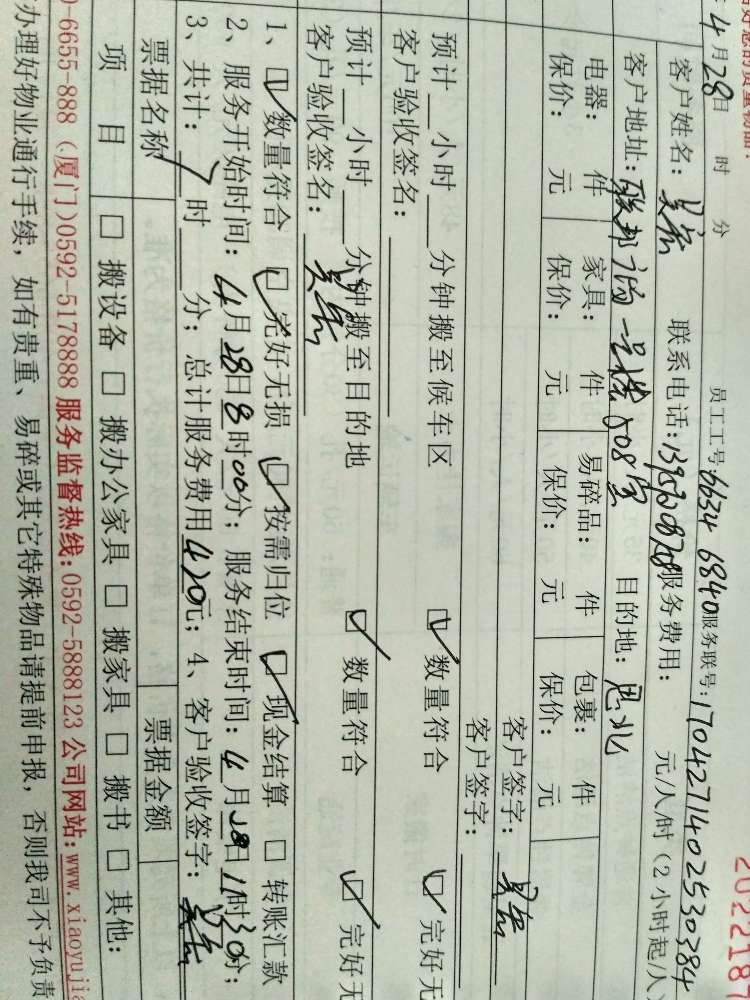 2022187
4月28日 时 分 员工工号6634 6840服务联号:170427140253038 4
客户姓名: 联系电话: 服务费用: 元/人/时(2小时起/人
客户地址: 一号楼508室 目的地:思北
电器: 件 家具: 件 易碎品: 件 包裹: 件
保价: 元 保价: 元 保价: 元 保价: 元
客户签字:
客户签字:
预计__小时__分钟搬至候车区 数量符合 完好无
客户验收签名:
预计__小时__分钟搬至目的地 数量符合 完好无
客户验收签名:
1、数量符合 完好无损 按需归位 现金结算 转账汇款
2、服务开始时间:4月28日8时00分;服务结束时间:4月28日11时30分;
3、共计:7时 分;总计服务费用420元;4、客户验收签字:
票据名称 票据金额
项 目 搬设备 搬办公家具 搬家具 搬书 其他:
0-6655-888(厦门)0592-5178888 服务监督热线:0592-5888123 公司网站:www.xiaoyujia
办理好物业通行手续,如有贵重、易碎或其它特殊物品请提前申报,否则我司不予负责